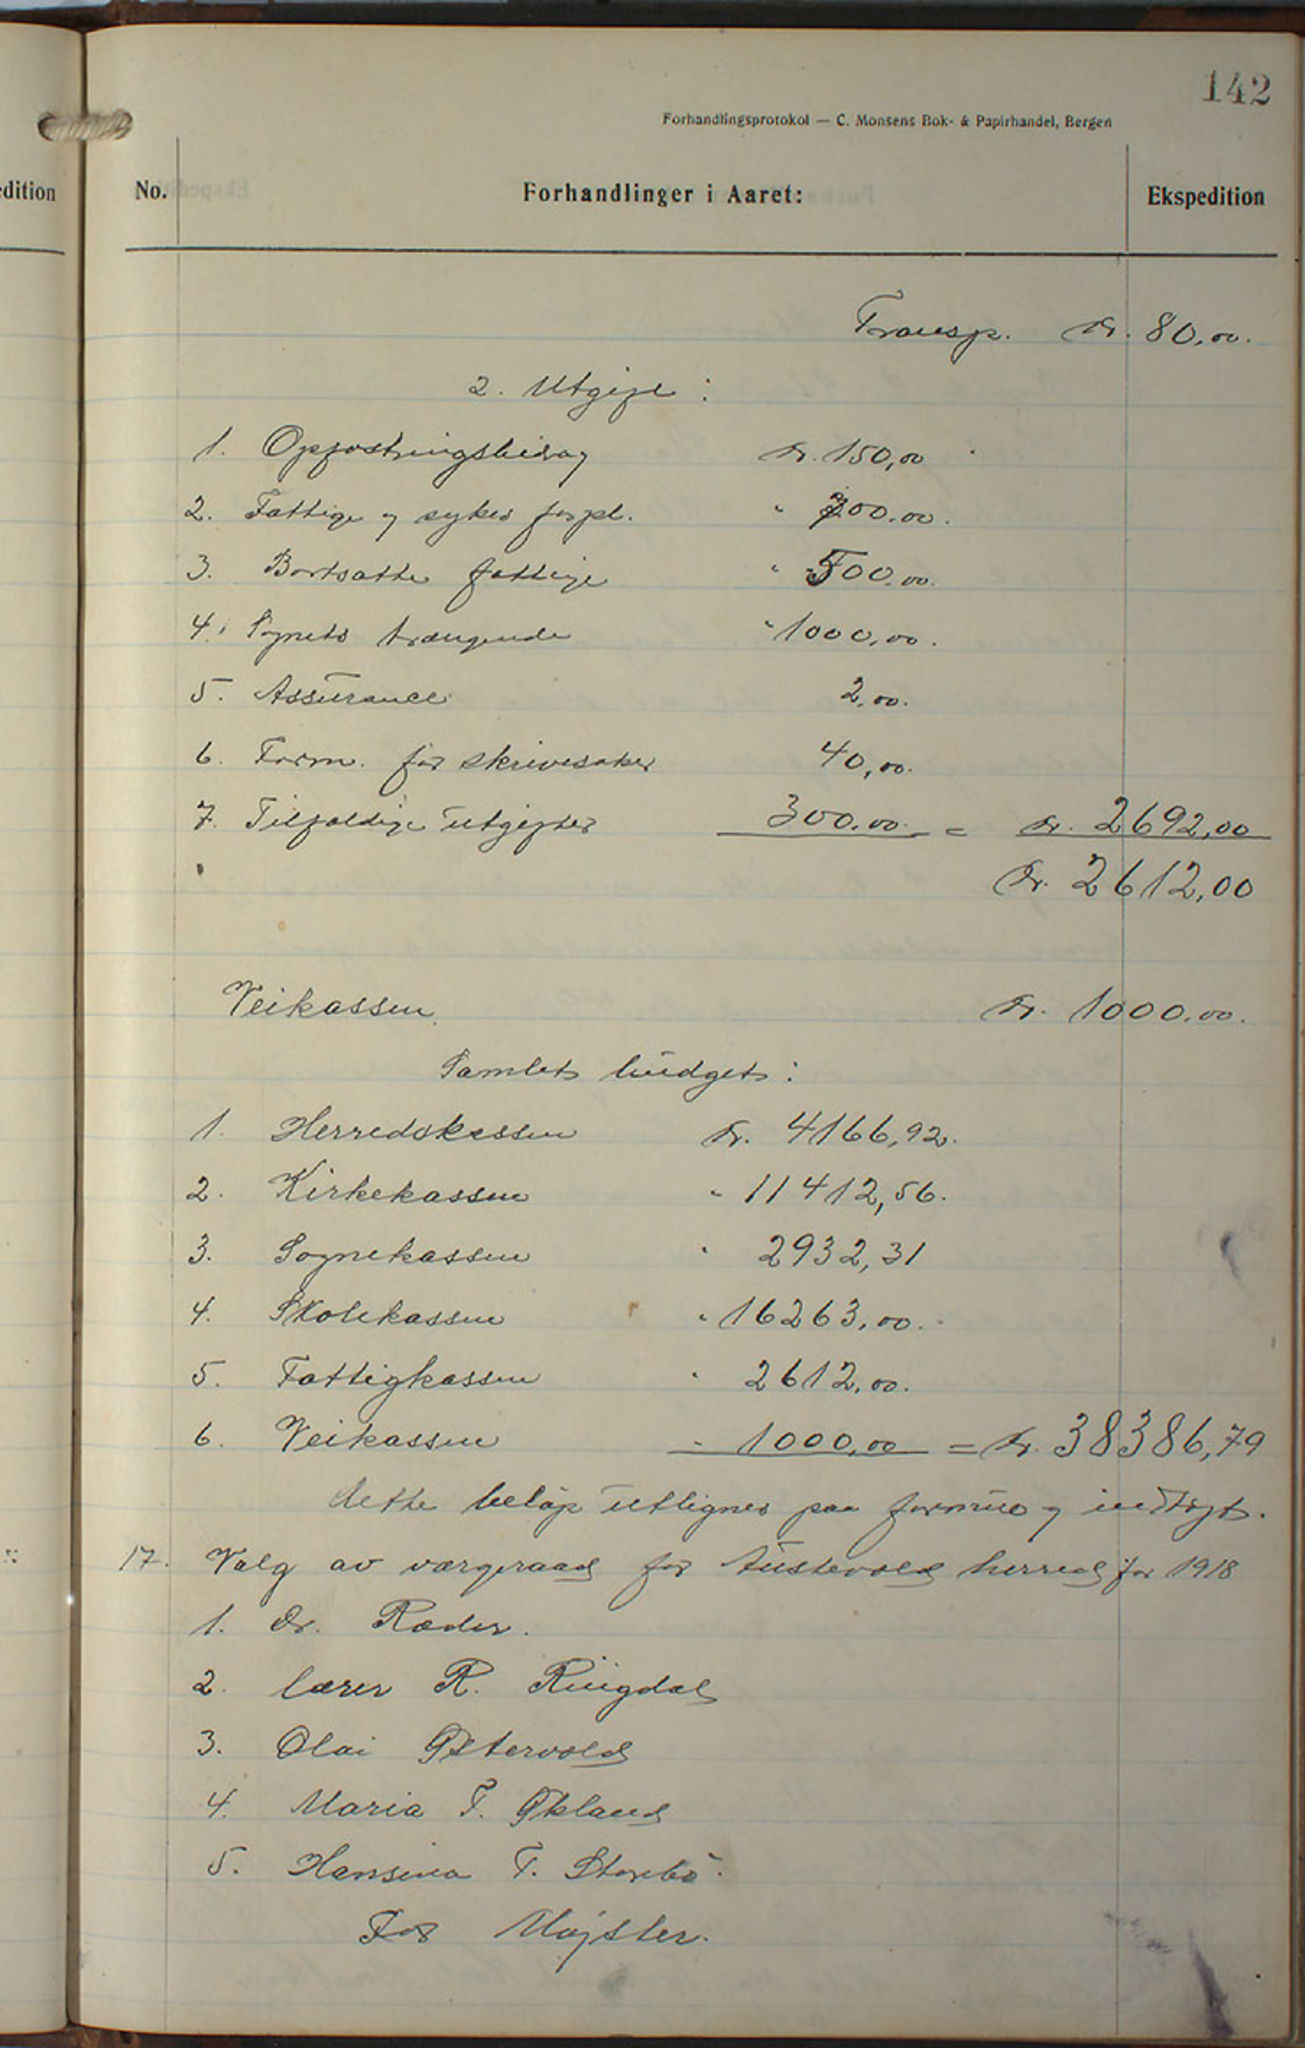 142
Forhandlingsprotokol — C. Monsens Bok- & Papirhandel, Bergen
edition No. Forhandlinger i Aaret: Ekspedition
Transp. Kr. 80,00.
2. Utgift:
1. Opfostringsbidrag Kr. 150,00
2. Fattige og sykes forpl. " 700.00.
3. Bortsatte fattige " 500.00.
4. Sognets trængende " 1000,00.
5. Assurance 2,00.
6. Form. for skrivesaker 40,00.
7. Tilfældige utgifter 300.00. = Kr. 2692,00
Kr. 2612,00
Veikassen Kr. 1000.00.
Samlet budget:
1. Herredskassen Kr. 4166,92.
2. Kirkekassen " 11412,56.
3. Sognekassen " 2932,31
4. Skolekassen " 16263,00.
5. Fattigkassen " 2612,00.
6. Veikassen " 1000,00 = Kr. 38386,79
dette beløp utlignes paa formue og indtægt.
17. Valg av værgeraad for Austevold herred for 1918
1. Dr. Ræder.
2. lærer R. Ringdal
3. Olai Østervold
4. Maria T. Økland
5. Hansina T. Storebø.